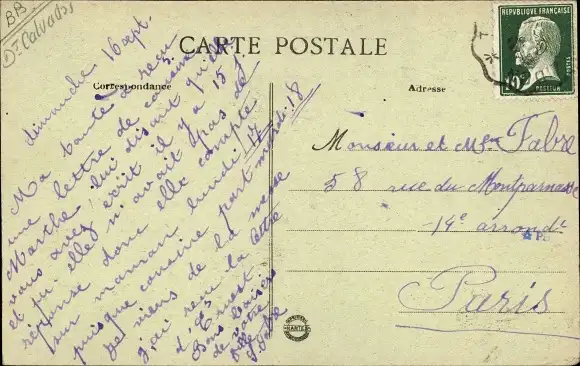 BB
Dt Calvados
CARTE POSTALE
Correspondance
Adresse
REPUBLIQUE FRANÇAISE
POSTES
10
PASTEUR
dimanche 16 sept.
Ma tante a reçu
une lettre de cousine
Marthe, lui disant qu'elle
vous avez écrit il y a 15 j.
et qu'elle n'avait pas de
réponse donc elle compte
sur maman lundi 17
puisque cousine part mardi 18
je viens de la messe
j'ai reçu la lettre
d'Ernest
Bons baisers
de votre
Fabre
Monsieur et Mme Fabre
58 rue du Montparnasse
14e arrondt
Paris
NANTES